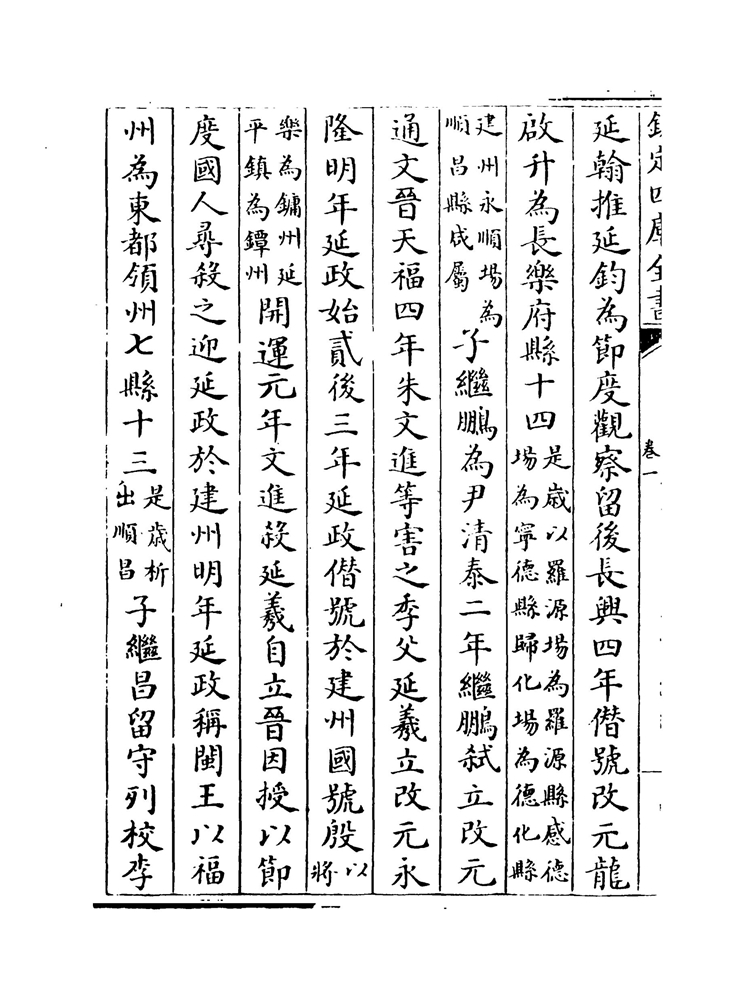 欽定四庫全書 卷一
延翰推延鈞為節度觀察留後長興四年僭號改元龍
啟升為長樂府縣十四是歲以羅源場為羅源縣感德場為寧德縣歸化場為德化縣
建州永順場為順昌縣成屬子繼鵬為尹清泰二年繼鵬弑立改元
通文晉天福四年朱文進等害之季父延羲立改元永
隆明年延政始貳後三年延政僭號於建州國號殷以將
樂為鏞州延平鎮為鐔州開運元年文進殺延羲自立晉因授以節
度國人尋殺之迎延政於建州明年延政稱閩王以福
州為東都領州七縣十三是歲析出順昌子繼昌留守列校李